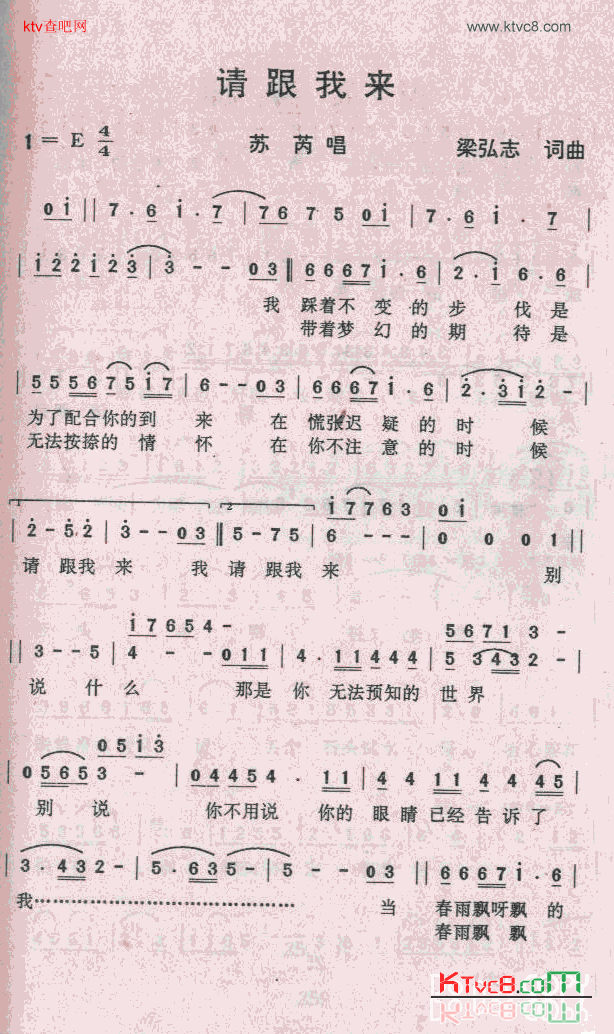 ktv查吧网 www.ktvc8.com
请跟我来
1 = E 4/4 苏芮唱 梁弘志 词曲
0 i || 7 · 6 i · 7 | 7 6 7 5 0 i | 7 · 6 i · 7 |
| i 2 2 i 2 3 | 3 - - 0 3 || 6 6 6 7 i · 6 | 2 · i 6 · 6 |
我 踩着不 变 的 步 伐 是
带着梦 幻 的 期 待 是
| 5 5 5 6 7 5 i 7 | 6 - - 0 3 | 6 6 6 7 i · 6 | 2 · 3 i 2 - |
为了配合你的到 来 在 慌张迟 疑 的 时 候
无法按捺的 情 怀 在 你不注 意 的 时 候
1 2 i 7 7 6 3 0 i
| 2 - 5 2 | 3 - - 0 3 || 5 - 7 5 | 6 - - - | 0 0 0 1 ||
请 跟我 来 我 请 跟我 来 别
i 7 6 5 4 - 5 6 7 1 3 -
|| 3 - - 5 | 4 - 0 1 1 | 4 · 1 1 4 4 4 | 5 3 4 3 2 - |
说 什 么 那是 你 无法预知的 世 界
0 5 i 3
| 0 5 6 5 3 - | 0 4 4 5 4 · 1 1 | 4 4 1 1 4 4 4 5 |
别 说 你不用说 你的 眼 睛 已经 告 诉 了
| 3 · 4 3 2 - | 5 · 6 3 5 - | 5 - - 0 3 || 6 6 6 7 i · 6 |
我…………………………… 当 春雨飘呀飘 的
春雨飘 飘
KTvc8.com